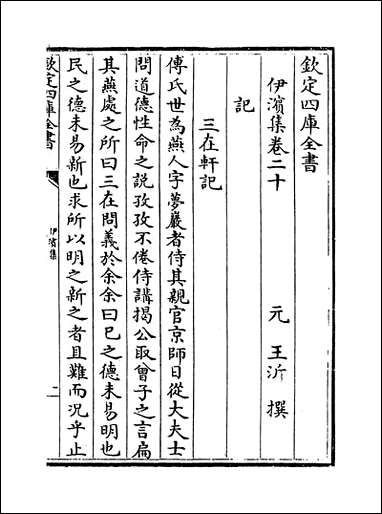 欽定四庫全書
伊濱集卷二十
元 王沂 撰
記
三在軒記
傅氏世為燕人字夢巖者侍其親官京師日從大夫士
問道德性命之說孜孜不倦侍講揭公取曾子之言扁
其燕處之所曰三在問義於余余曰已之德未易明也
民之德未易新也求所以明之新之者且難而況乎止
欽定四庫全書
伊濱集